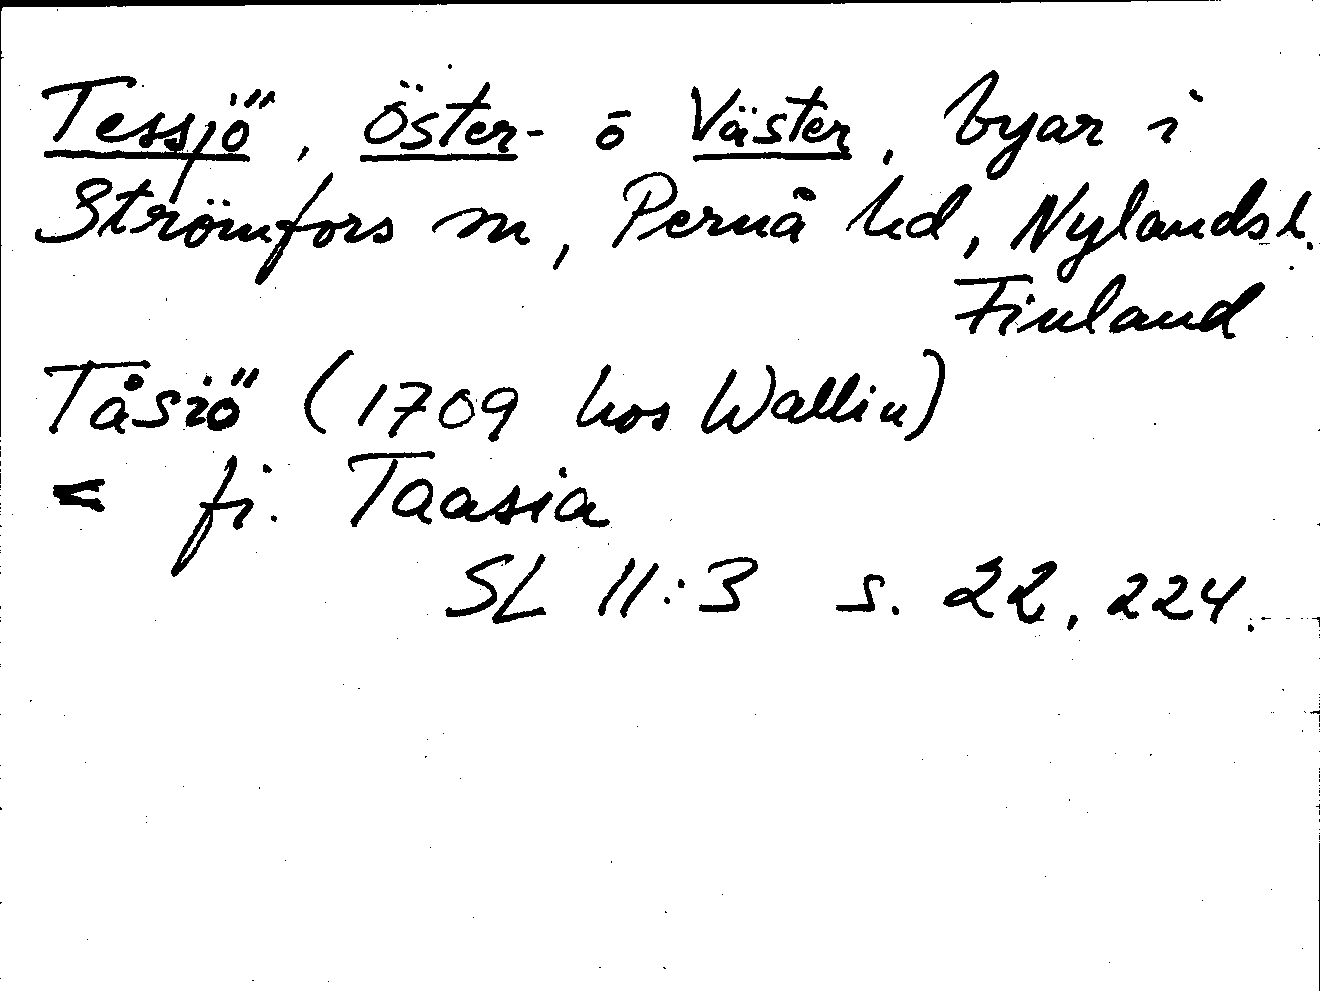 Tessjö, Öster- ō Väster, byar i
Strömfors sn, Pernå hd, Nylands l.
Finland
Tåsiö (1709 hos Wallin)
< fi. Taasia
SL 11:3 s. 22, 224.